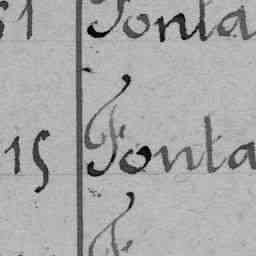 51 Fonta
15 Fonta
F